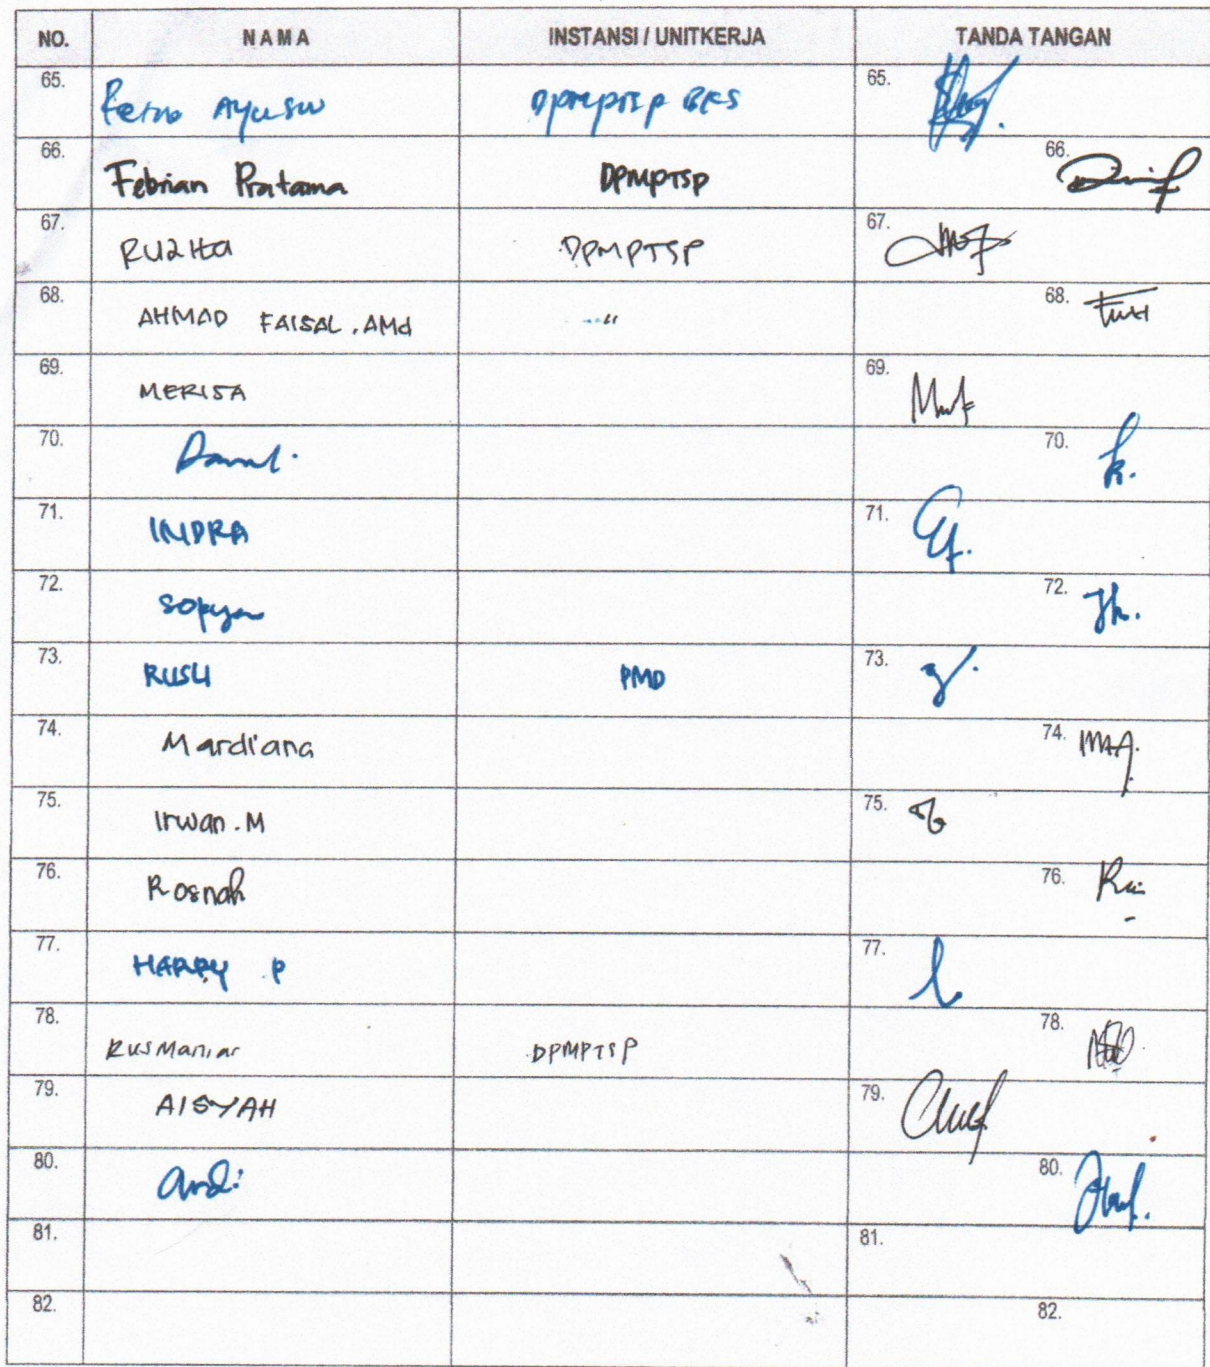 NO. NAMA INSTANSI / UNITKERJA TANDA TANGAN
65. Retno Ayusw DPMPTSP BKS 65.
66. Febrian Pratama DPMPTSP 66.
67. RUZITA DPMPTSP 67.
68. AHMAD FAISAL. AMd " 68.
69. MERISA 69.
70. 70.
71. INDRA 71.
72. Sopyan 72.
73. RUSLI PMD 73.
74. Mardiana 74.
75. Irwan. M 75.
76. Rosnah 76.
77. HARRY P 77.
78. Rusmaniar DPMPTSP 78.
79. AISYAH 79.
80. Andi 80.
81. 81.
82. 82.